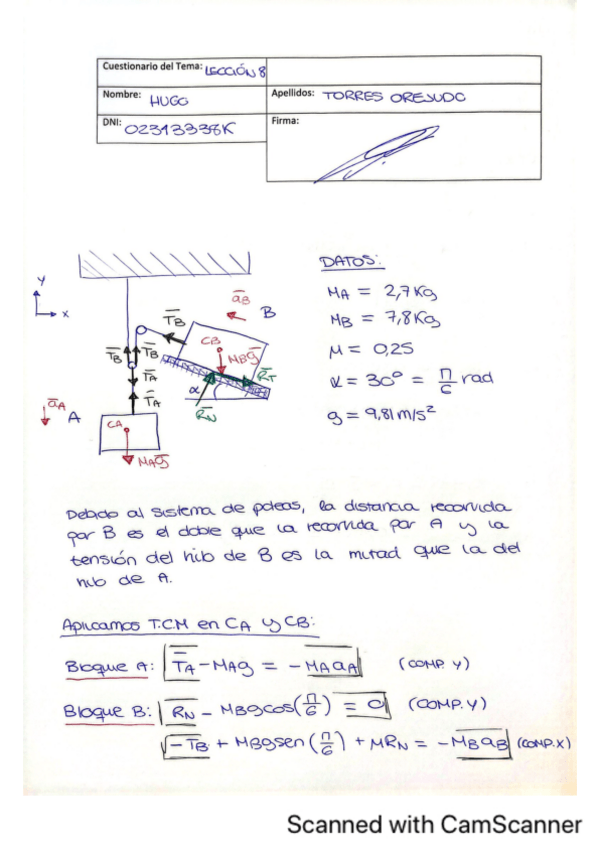 Cuestionario del Tema: LECCIÓN 8
Nombre: HUGO Apellidos: TORRES OREJUDO
DNI: 02313338K Firma:
DATOS:
MA = 2,7 Kg
MB = 7,8 Kg
μ = 0,25
α = 30° = π/6 rad
g = 9,81 m/s²
y
x
āB
B
T̄B
CB
MBḡ
R̄T
T̄B
T̄B
T̄A
α
R̄N
āA
A
T̄A
CA
MAḡ
Debido al sistema de poleas, la distancia recorrida
por B es el doble que la recorrida por A y la
tensión del hilo de B es la mitad que la del
hilo de A.
Aplicamos T.C.M en CA y CB:
Bloque A: TA - MAg = - MAaA (COMP. Y)
Bloque B: RN - MBgcos(π/6) = 0 (COMP. Y)
-TB + MBgsen(π/6) + μRN = - MBaB (COMP. X)
Scanned with CamScanner